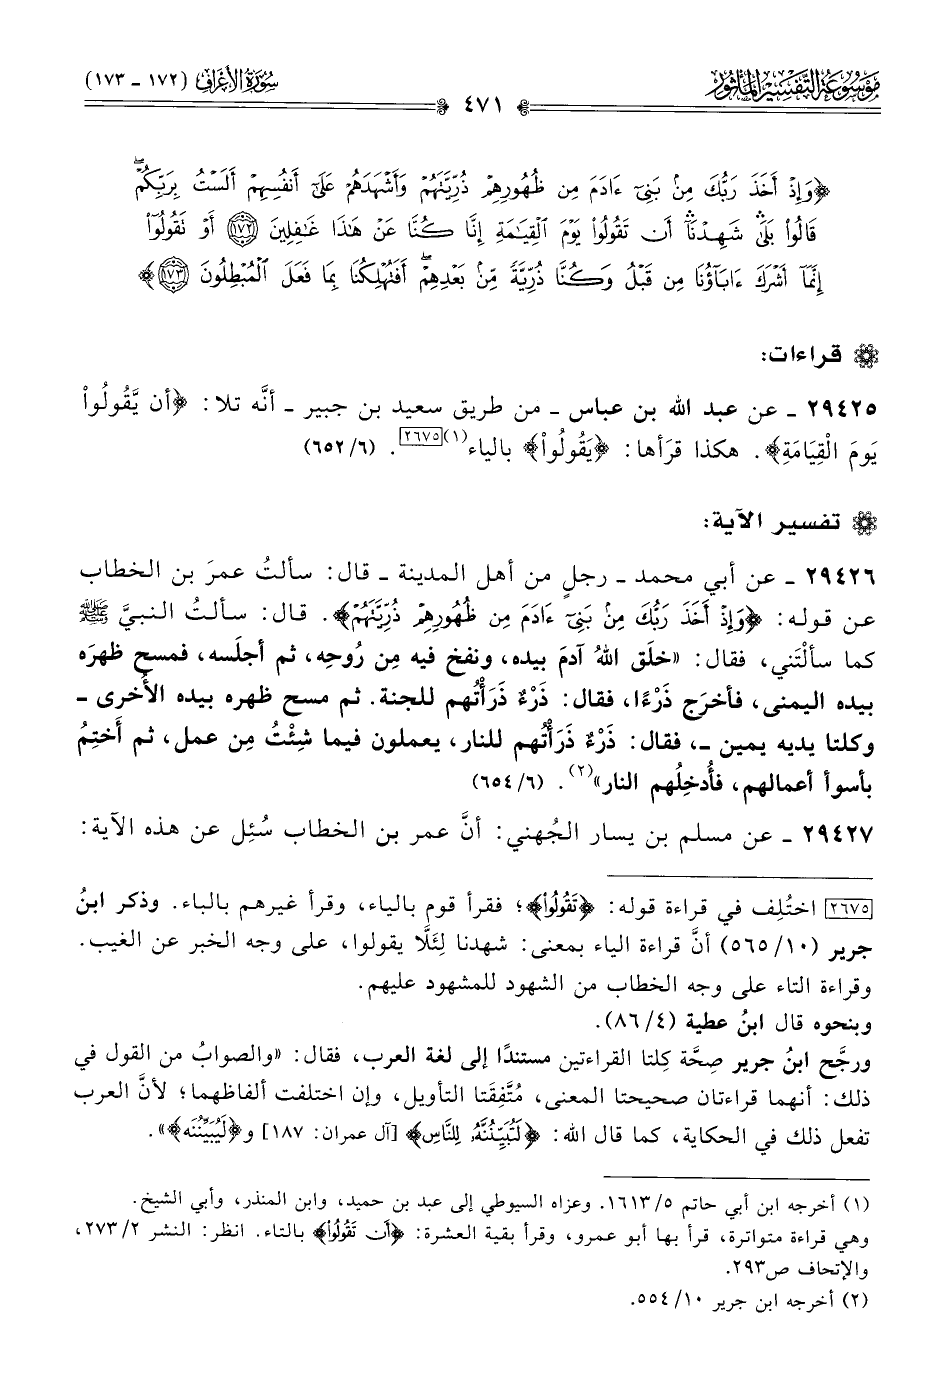 مَوْسُوعَة التَّفْسِيْر المَأْثُور
سُورَةُ الأَعْرَافِ (١٧٢ - ١٧٣)
٤٧١
﴿وَإِذْ أَخَذَ رَبُّكَ مِنْ بَنِىٓ ءَادَمَ مِن ظُهُورِهِمْ ذُرِّيَّتَهُمْ وَأَشْهَدَهُمْ عَلَىٰٓ أَنفُسِهِمْ أَلَسْتُ بِرَبِّكُمْۖ
قَالُوا۟ بَلَىٰۛ شَهِدْنَآۛ أَن تَقُولُوا۟ يَوْمَ ٱلْقِيَٰمَةِ إِنَّا كُنَّا عَنْ هَٰذَا غَٰفِلِينَ ﴿١٧٢﴾ أَوْ تَقُولُوٓا۟
إِنَّمَآ أَشْرَكَ ءَابَآؤُنَا مِن قَبْلُ وَكُنَّا ذُرِّيَّةً مِّنۢ بَعْدِهِمْۖ أَفَتُهْلِكُنَا بِمَا فَعَلَ ٱلْمُبْطِلُونَ ﴿١٧٣﴾﴾
قراءات:
٢٩٤٢٥ ـ عن عبد الله بن عباس ـ من طريق سعيد بن جبير ـ أنَّه تلا: ﴿أن يَّقُولُواْ
يَومَ الْقِيَامَةِ﴾. هكذا قرَأها: ﴿يَقُولُواْ﴾ بالياء(١)[٢٦٧٥]. (٦/ ٦٥٢)
تفسير الآية:
٢٩٤٢٦ ـ عن أبي محمد ـ رجلٍ من أهل المدينة ـ قال: سألتُ عمرَ بن الخطاب
عن قوله: ﴿وَإِذْ أَخَذَ رَبُّكَ مِنْ بَنِىٓ ءَادَمَ مِن ظُهُورِهِمْ ذُرِّيَّتَهُمْ﴾. قال: سألتُ النبيَّ ﷺ
كما سألْتَني، فقال: «خلَق اللهُ آدمَ بيده، ونفخ فيه مِن رُوحِه، ثم أجلَسه، فمسح ظهرَه
بيده اليمنى، فأخرَج ذَرْءًا، فقال: ذَرْءٌ ذَرَأْتُهم للجنة. ثم مسح ظهره بيده الأُخرى ـ
وكلتا يديه يمين ـ، فقال: ذَرْءٌ ذَرَأْتُهم للنار، يعملون فيما شِئْتُ مِن عمل، ثم أَختِمُ
بأسوأ أعمالهم، فأُدخِلُهم النار»(٢). (٦/ ٦٥٤)
٢٩٤٢٧ ـ عن مسلم بن يسار الجُهني: أنَّ عمر بن الخطاب سُئِل عن هذه الآية:
[٢٦٧٥] اختُلِف في قراءة قوله: ﴿تَقُولُوا۟﴾؛ فقرأ قوم بالياء، وقرأ غيرهم بالباء. وذكر ابنُ
جرير (١٠/ ٥٦٥) أنَّ قراءة الياء بمعنى: شهدنا لِئَلَّا يقولوا، على وجه الخبر عن الغيب.
وقراءة التاء على وجه الخطاب من الشهود للمشهود عليهم.
وبنحوه قال ابنُ عطية (٤/ ٨٦).
ورجَّح ابنُ جرير صِحَّة كِلتا القراءتين مستندًا إلى لغة العرب، فقال: «والصوابُ من القول في
ذلك: أنهما قراءتان صحيحتا المعنى، مُتَّفِقَتا التأويل، وإن اختلفت ألفاظهما؛ لأنَّ العرب
تفعل ذلك في الحكاية، كما قال الله: ﴿لَتُبَيِّنُنَّهُۥ لِلنَّاسِ﴾ [آل عمران: ١٨٧] و﴿لَيُبَيِّنُنَّه﴾».
(١) أخرجه ابن أبي حاتم ٥/ ١٦١٣. وعزاه السيوطي إلى عبد بن حميد، وابن المنذر، وأبي الشيخ.
وهي قراءة متواترة، قرأ بها أبو عمرو، وقرأ بقية العشرة: ﴿أَن تَقُولُوا۟﴾ بالتاء. انظر: النشر ٢/ ٢٧٣،
والإتحاف ص٢٩٣.
(٢) أخرجه ابن جرير ١٠/ ٥٥٤.